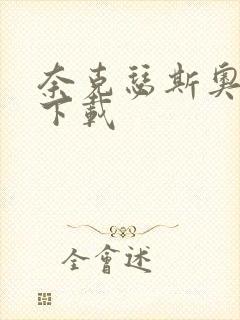 奈克瑟斯奥
下載
全會述